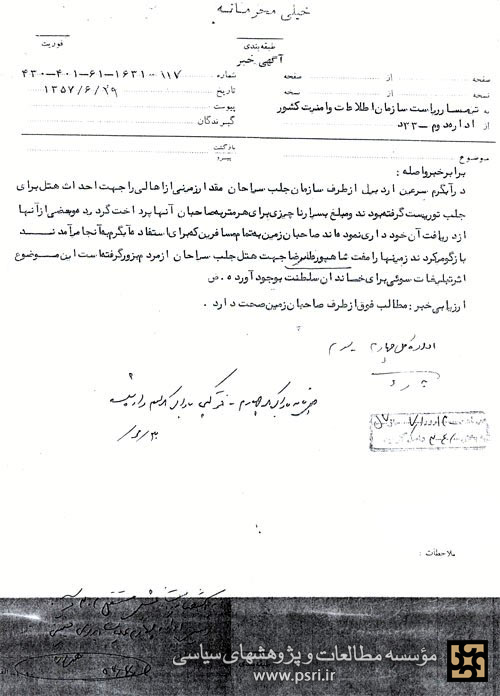 خیلی محرمانه
طبقه‌بندی
فوریت
آگهی خبر
صفحه از صفحه
شماره ۱۱۷-۱۶۳۱-۶۱-۴۰۱-۴۳۰
نسخه از نسخه
تاریخ ۱۳۵۷/۶/۱۹
به تیمسار ریاست سازمان اطلاعات و امنیت کشور
پیوست
از اداره دوم - ۳۳د
گیرندگان
موضوع
بازگشت
پیرو
برابر خبر واصله :
در آبگرم سرعین اردبیل از طرف سازمان جلب سیاحان مقداری زمینی از اهالی را جهت احداث هتل برای
جلب توریست گرفته بودند و مبلغ بسیار ناچیزی برای هر متر به صاحبان آنها پرداخت گردیده و بعضی از آنها
از دریافت آن خودداری نموده‌اند صاحبان زمین به تمام مسافرین که برای استفاده آبگرم به آنجا می‌آمدند
بازگو می‌کردند زمینها را مفت شاهپور غلامرضا جهت هتل جلب سیاحان از مردم بزور گرفته است این موضوع
اثر تبلیغات سوئی برای خاندان سلطنت بوجود آورده . ص
ارزیابی خبر : مطالب فوق از طرف صاحبان زمین صحت دارد .
اداره کل چهارم
ملاحظات :
مؤسسه مطالعات و پژوهشهای سیاسی
www.psri.ir